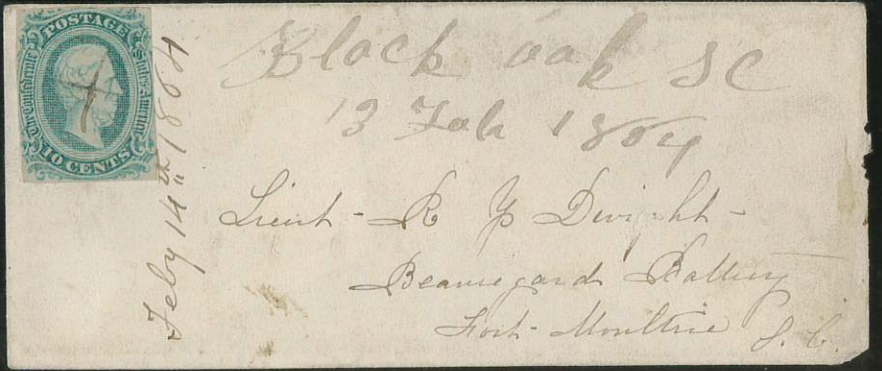 POSTAGE
The Confederate States of America
10 CENTS
Feby 14th 1864
Black oak SC
13 Feb 1864
Lieut - R Y Dwight -
Beauregard Battery
Fort - Moultrie S. C.